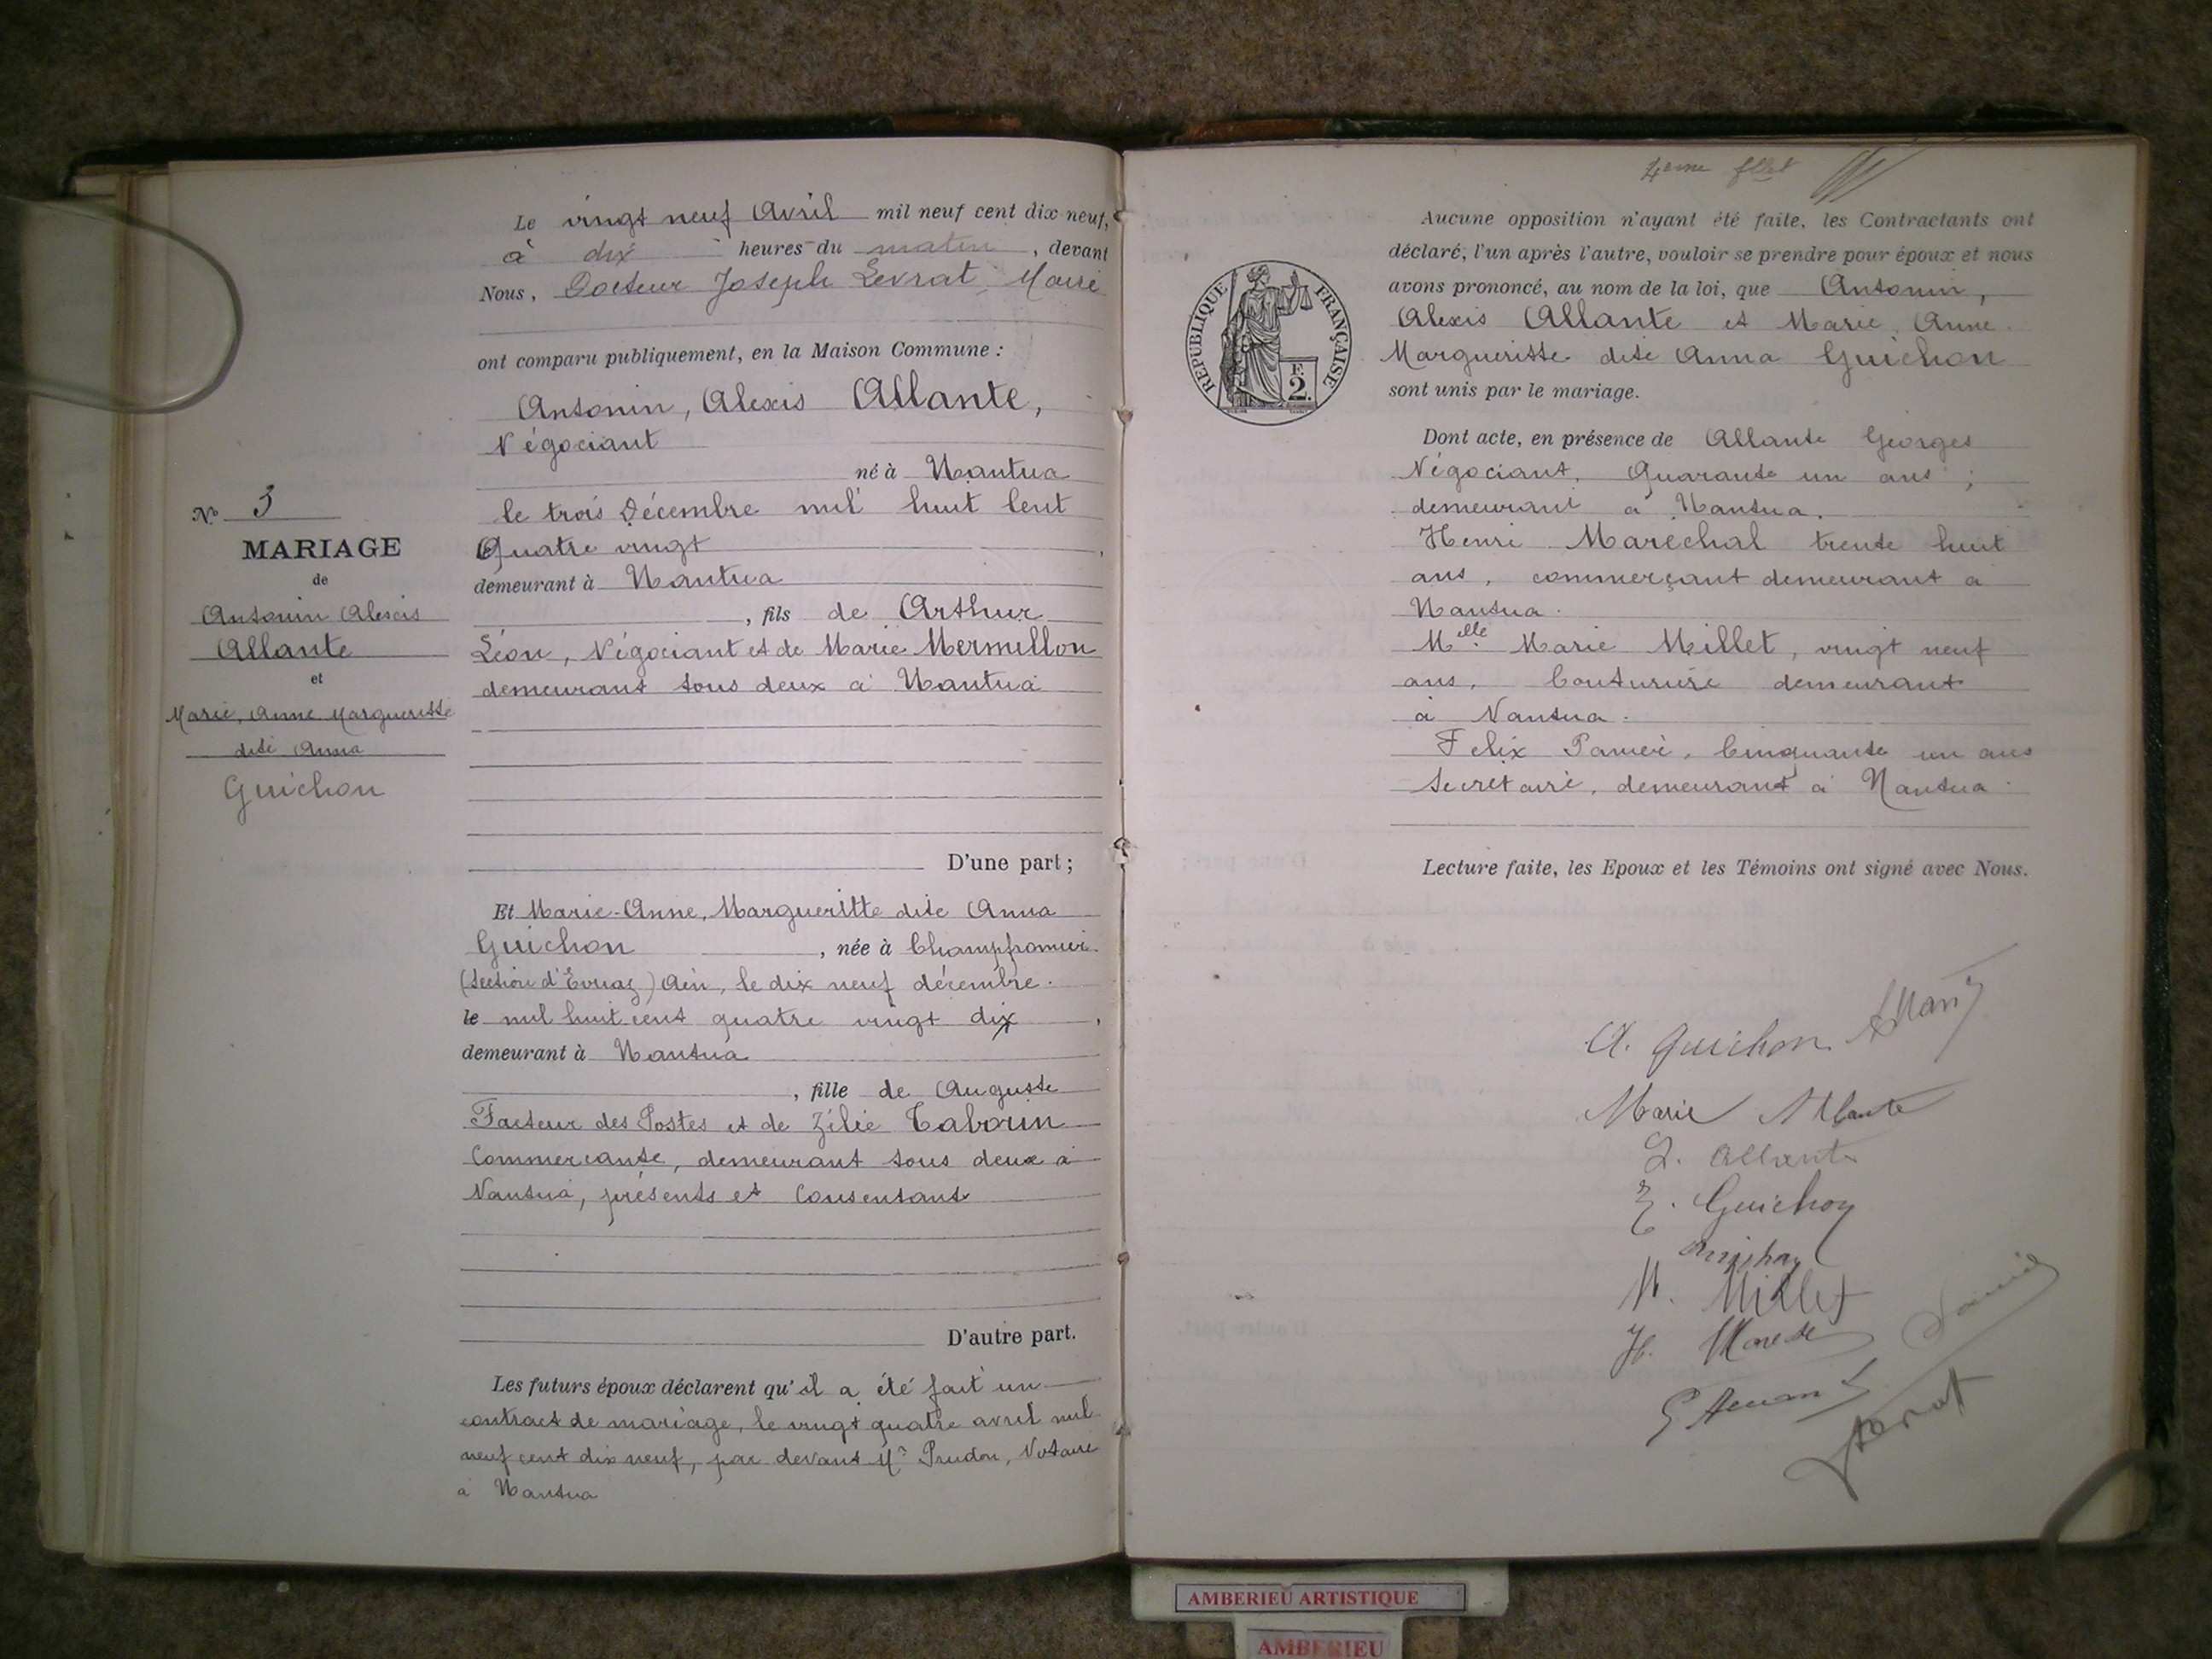 Le vingt neuf Avril mil neuf cent dix neuf,
à dix heures du matin, devant
Nous, Docteur Joseph Levrat, Maire
ont comparu publiquement, en la Maison Commune :
Antonin, Alexis Allante,
Négociant
né à Nantua
le trois Décembre mil huit Cent
Quatre vingt
demeurant à Nantua
, fils de Arthur
Léon, Négociant et de Marie Mermillon
demeurant tous deux à Nantua
D'une part ;
Et Marie-Anne, Margueritte dite Anna
Guichon, née à Champfromier
(Section d'Evuaz) Ain, le dix neuf décembre
le mil huit cent quatre vingt dix,
demeurant à Nantua
, fille de Auguste
Facteur des Postes et de Zélie Tabourin
Commerçante, demeurant tous deux à
Nantua, présents et Consentant
D'autre part.
Les futurs époux déclarent qu'il a été fait un
contract de mariage, le vingt quatre avril mil
neuf cent dix neuf, par devant Me Prudon, Notaire
à Nantua
No 3
MARIAGE
de
Antonin Alexis
Allante
et
Marie, Anne Margueritte
dite Anna
Guichon
4eme
Aucune opposition n'ayant été faite, les Contractants ont
déclaré, l'un après l'autre, vouloir se prendre pour époux et nous
avons prononcé, au nom de la loi, que Antonin,
Alexis Allante et Marie, Anne
Margueritte dite Anna Guichon
sont unis par le mariage.
RÉPUBLIQUE FRANÇAISE
F.
2.
Dont acte, en présence de Allante Georges
Négociant, Quarante un ans ;
demeurant à Nantua.
Henri Maréchal trente huit
ans, commerçant demeurant à
Nantua.
Melle Marie Millet, vingt neuf
ans, Couturière demeurant
à Nantua.
Felix Cinquante un ans
Secretaire, demeurant à Nantua
Lecture faite, les Epoux et les Témoins ont signé avec Nous.
A. Guichon
Marie Allante
L. Allante
Z. Guichon
M. Millet
H.
G
Levrat
AMBERIEU ARTISTIQUE
AMBERIEU